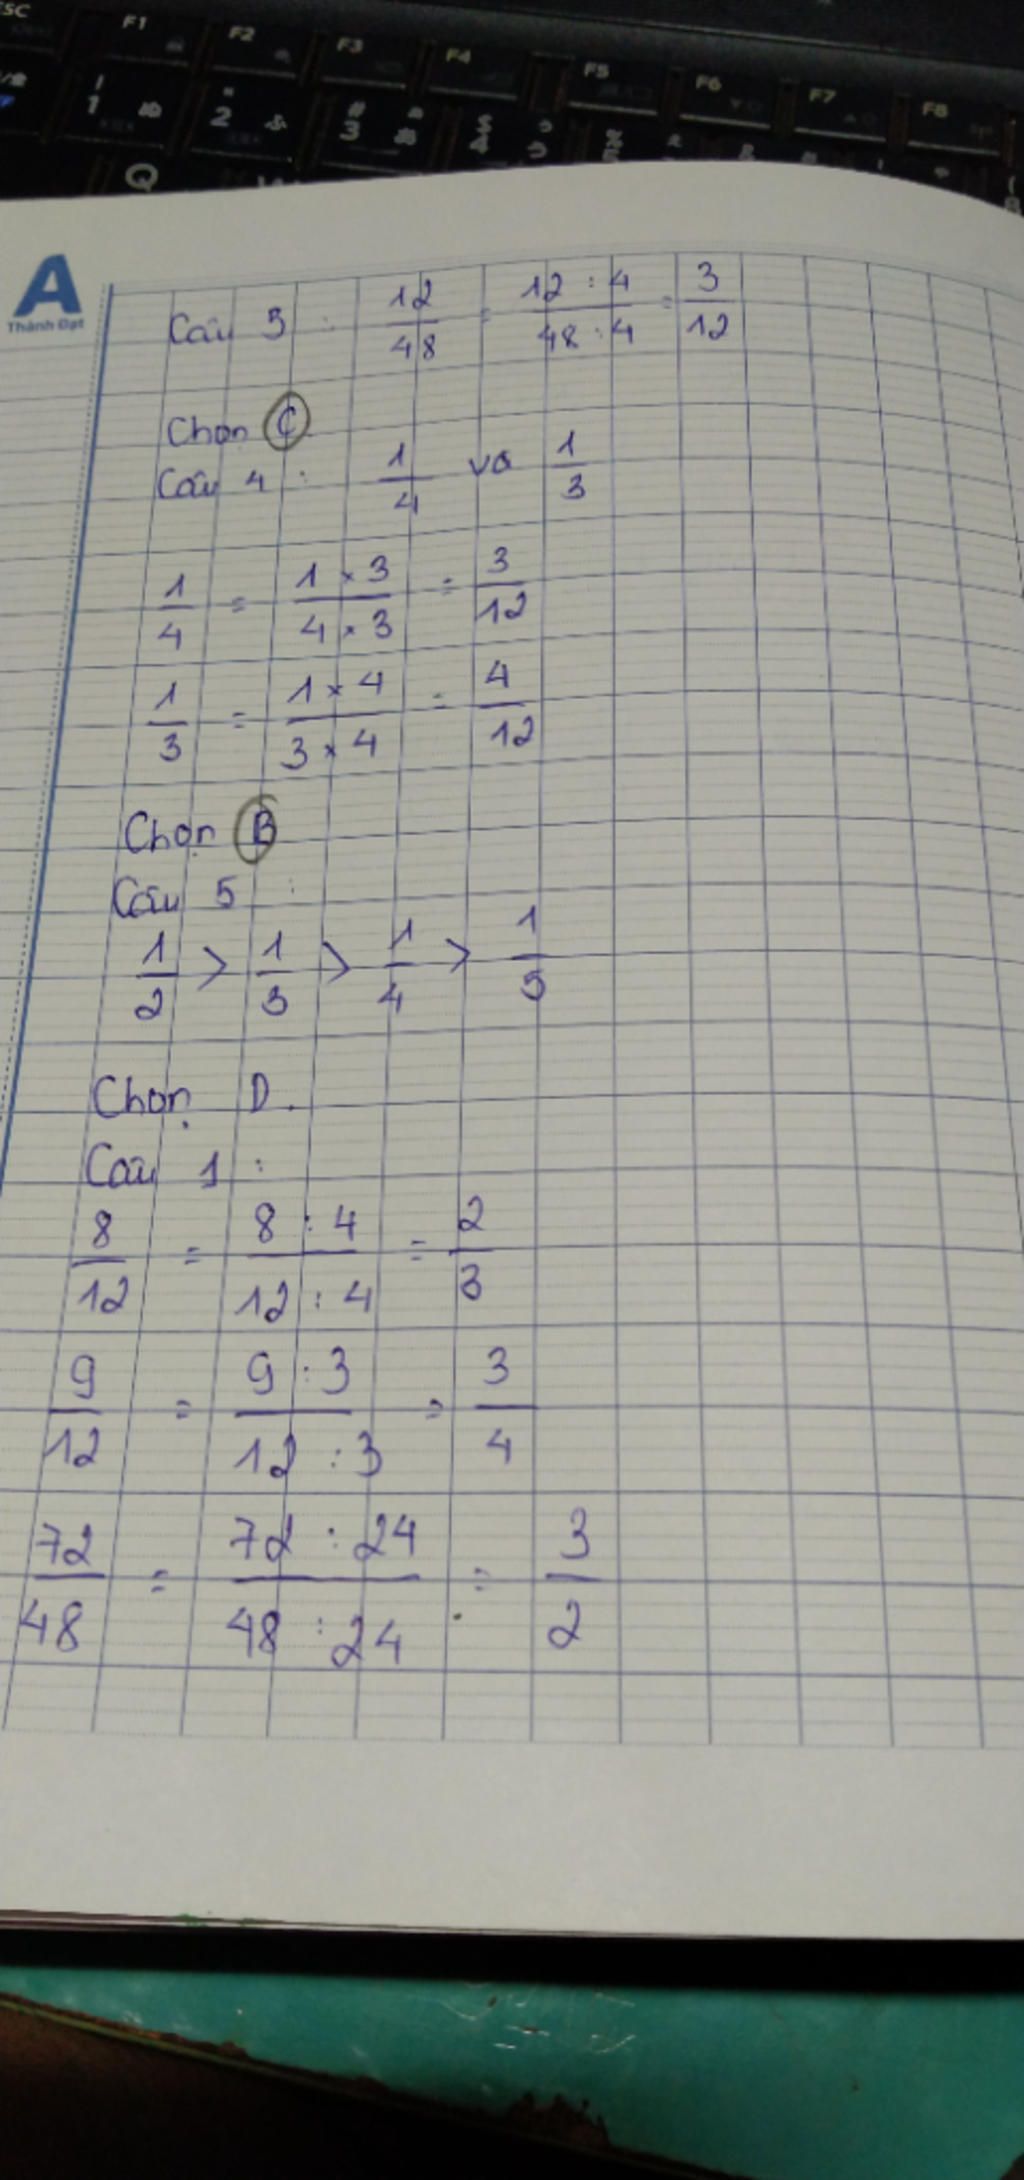 SC
F1
F2
F3
F4
F5
F6
F7
F8
1
2
#
3
$
4
%
Q
A
Thành Đạt
Câu 3 : 12/48 = 12 : 4/48 : 4 = 3/12
Chọn C
Câu 4 : 1/4 và 1/3
1/4 = 1 × 3/4 × 3 = 3/12
1/3 = 1 × 4/3 × 4 = 4/12
Chọn B
Câu 5 :
1/2 > 1/3 > 1/4 > 1/5
Chọn D.
Câu 1 :
8/12 = 8 : 4/12 : 4 = 2/3
9/12 = 9 : 3/12 : 3 = 3/4
72/48 = 72 : 24/48 : 24 = 3/2